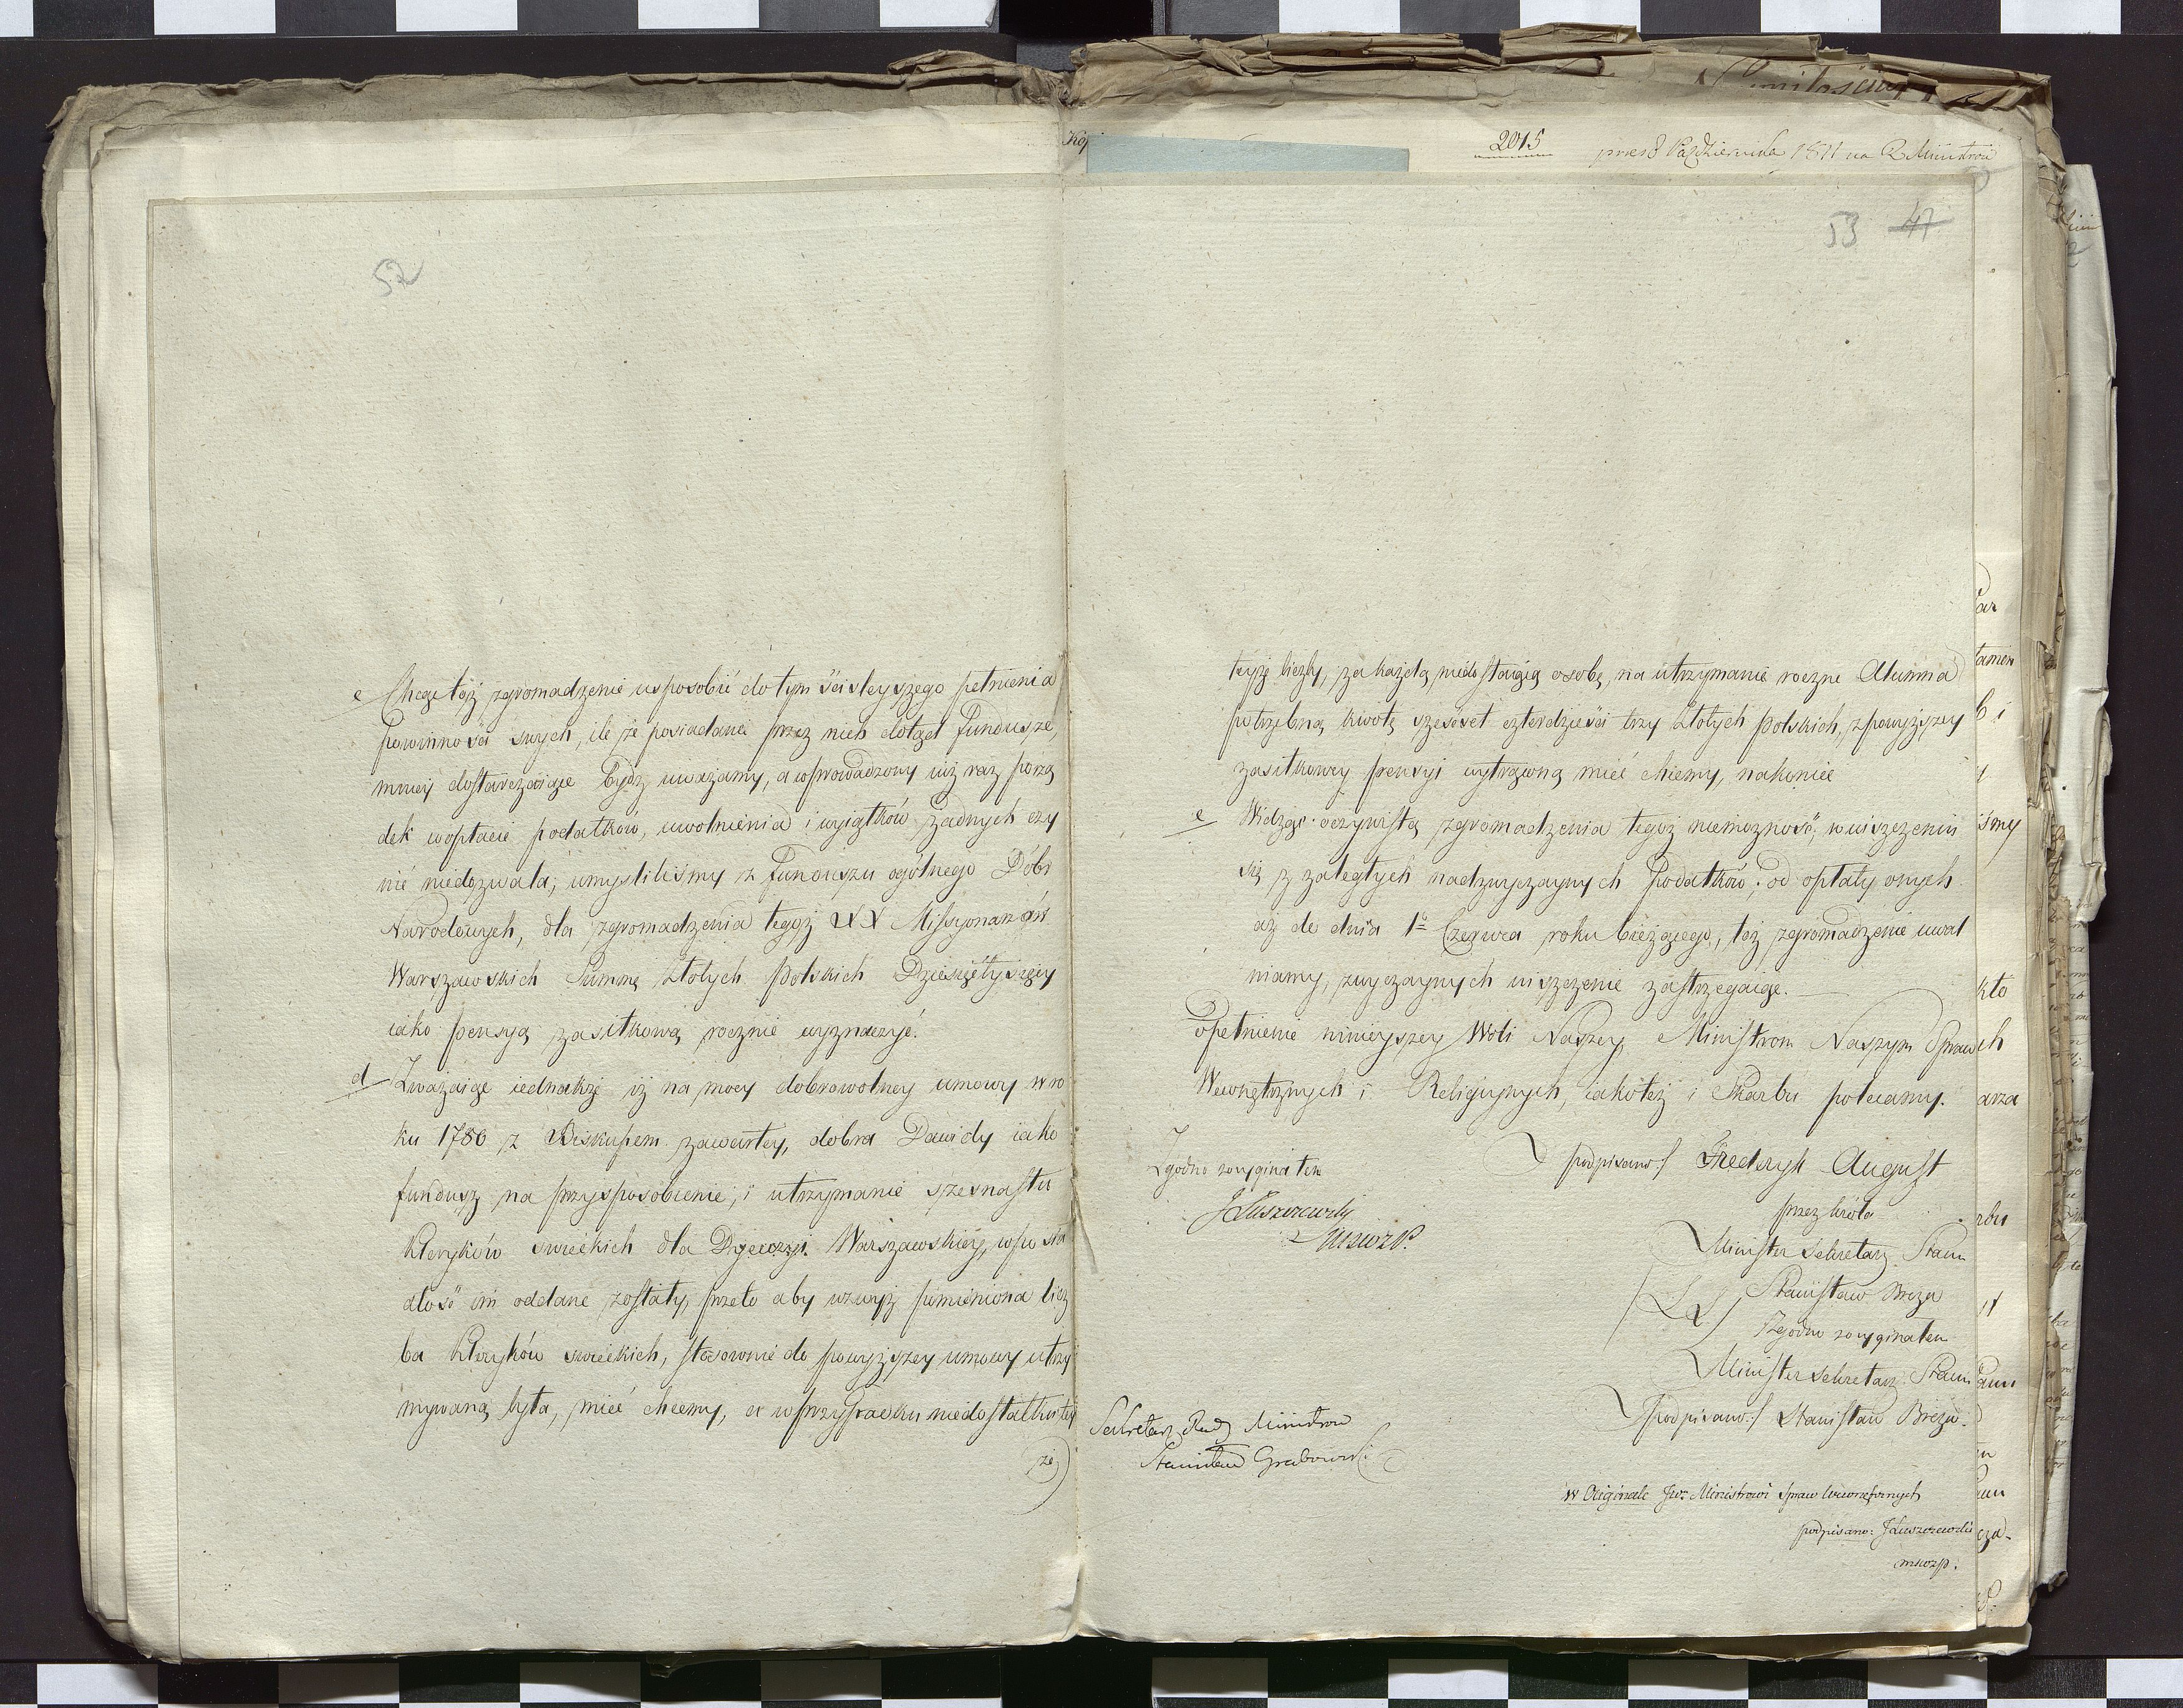 2015
praes 8 Października 1811 na R Ministrów
52
53 47
c Chcąc toż zgromadzenie usposobić do tym ściśleyszego pełnienia
Powinności swych, ile że posiadane przez nich dotąd Fundusze,
mniey dostarczaiące bydź uważamy, a wprowadzony iuż raz porzą
dek w opłacie podatków, uwolnienia i wyiątków żadnych czy
nić niedozwala; umyśliliśmy z Funduszu ogólnego Dóbr
Narodowych, dla zgromadzenia tegoż XX Missyonarzów
Warszawskich Summę Złotych Polskich Dziesięćtysięcy
iako pensyą zasiłkową rocznie wyznaczyć.
d Zważaiąc iednakże iż na mocy dobrowolney umowy w ro
ku 1780 z Biskupem zawartey, dobra Dawidy iako
fundusz na przysposobienie, i utrzymanie szesnastu
Kleryków świeckich dla Dyecezyi Warszawskiey, w posia
dłość im oddane zostały, przeto aby wzwyż pomieniona licz
ba Kleryków świeckich, stosownie do powyższey umowy utrzy
mywaną była, mieć chcemy, a w przypadku niedostatku tey
że)
teyże liczby, za każdą niedostaiącą osobę na utrzymanie roczne Alumna
potrzebną kwotę sześćset czterdzieści trzy Złotych Polskich, z powyższey
zasiłkowey pensyi wytrąconą mieć chcemy, nakoniec
e Widząc oczywistą zgromadzenia tegoż niemożność, w uiszczeniu
się z zaległych nadzwyczaynych Podatków; od opłaty onych
aż do dnia 1º Czerwca roku bieżącego, toż zgromadzenie uwal
niamy, zwyczaynych uiszczenie zastrzegaiąc.
Dopełnienie ninieyszey Woli Naszey Ministrom Naszym Spraw
Wewnętrznych i Religiynych, iakoteż i Skarbu polecamy.
podpisano:/ Frederyk August
Zgodno z oryginałem
przez Króla
J Łuszczewski
Minister Sekretarz Stanu
Stanisław Breza
Zgodno z oryginałem
Minister Sekretarz Stanu
podpisano:/ Stanisław Breza.
Sekretarz Rady Ministrów
Stanisław Grabowski
w Originale Jw. Ministrowi Spraw Wewnętrznych
podpisano: J Łuszczewski
mswzp.